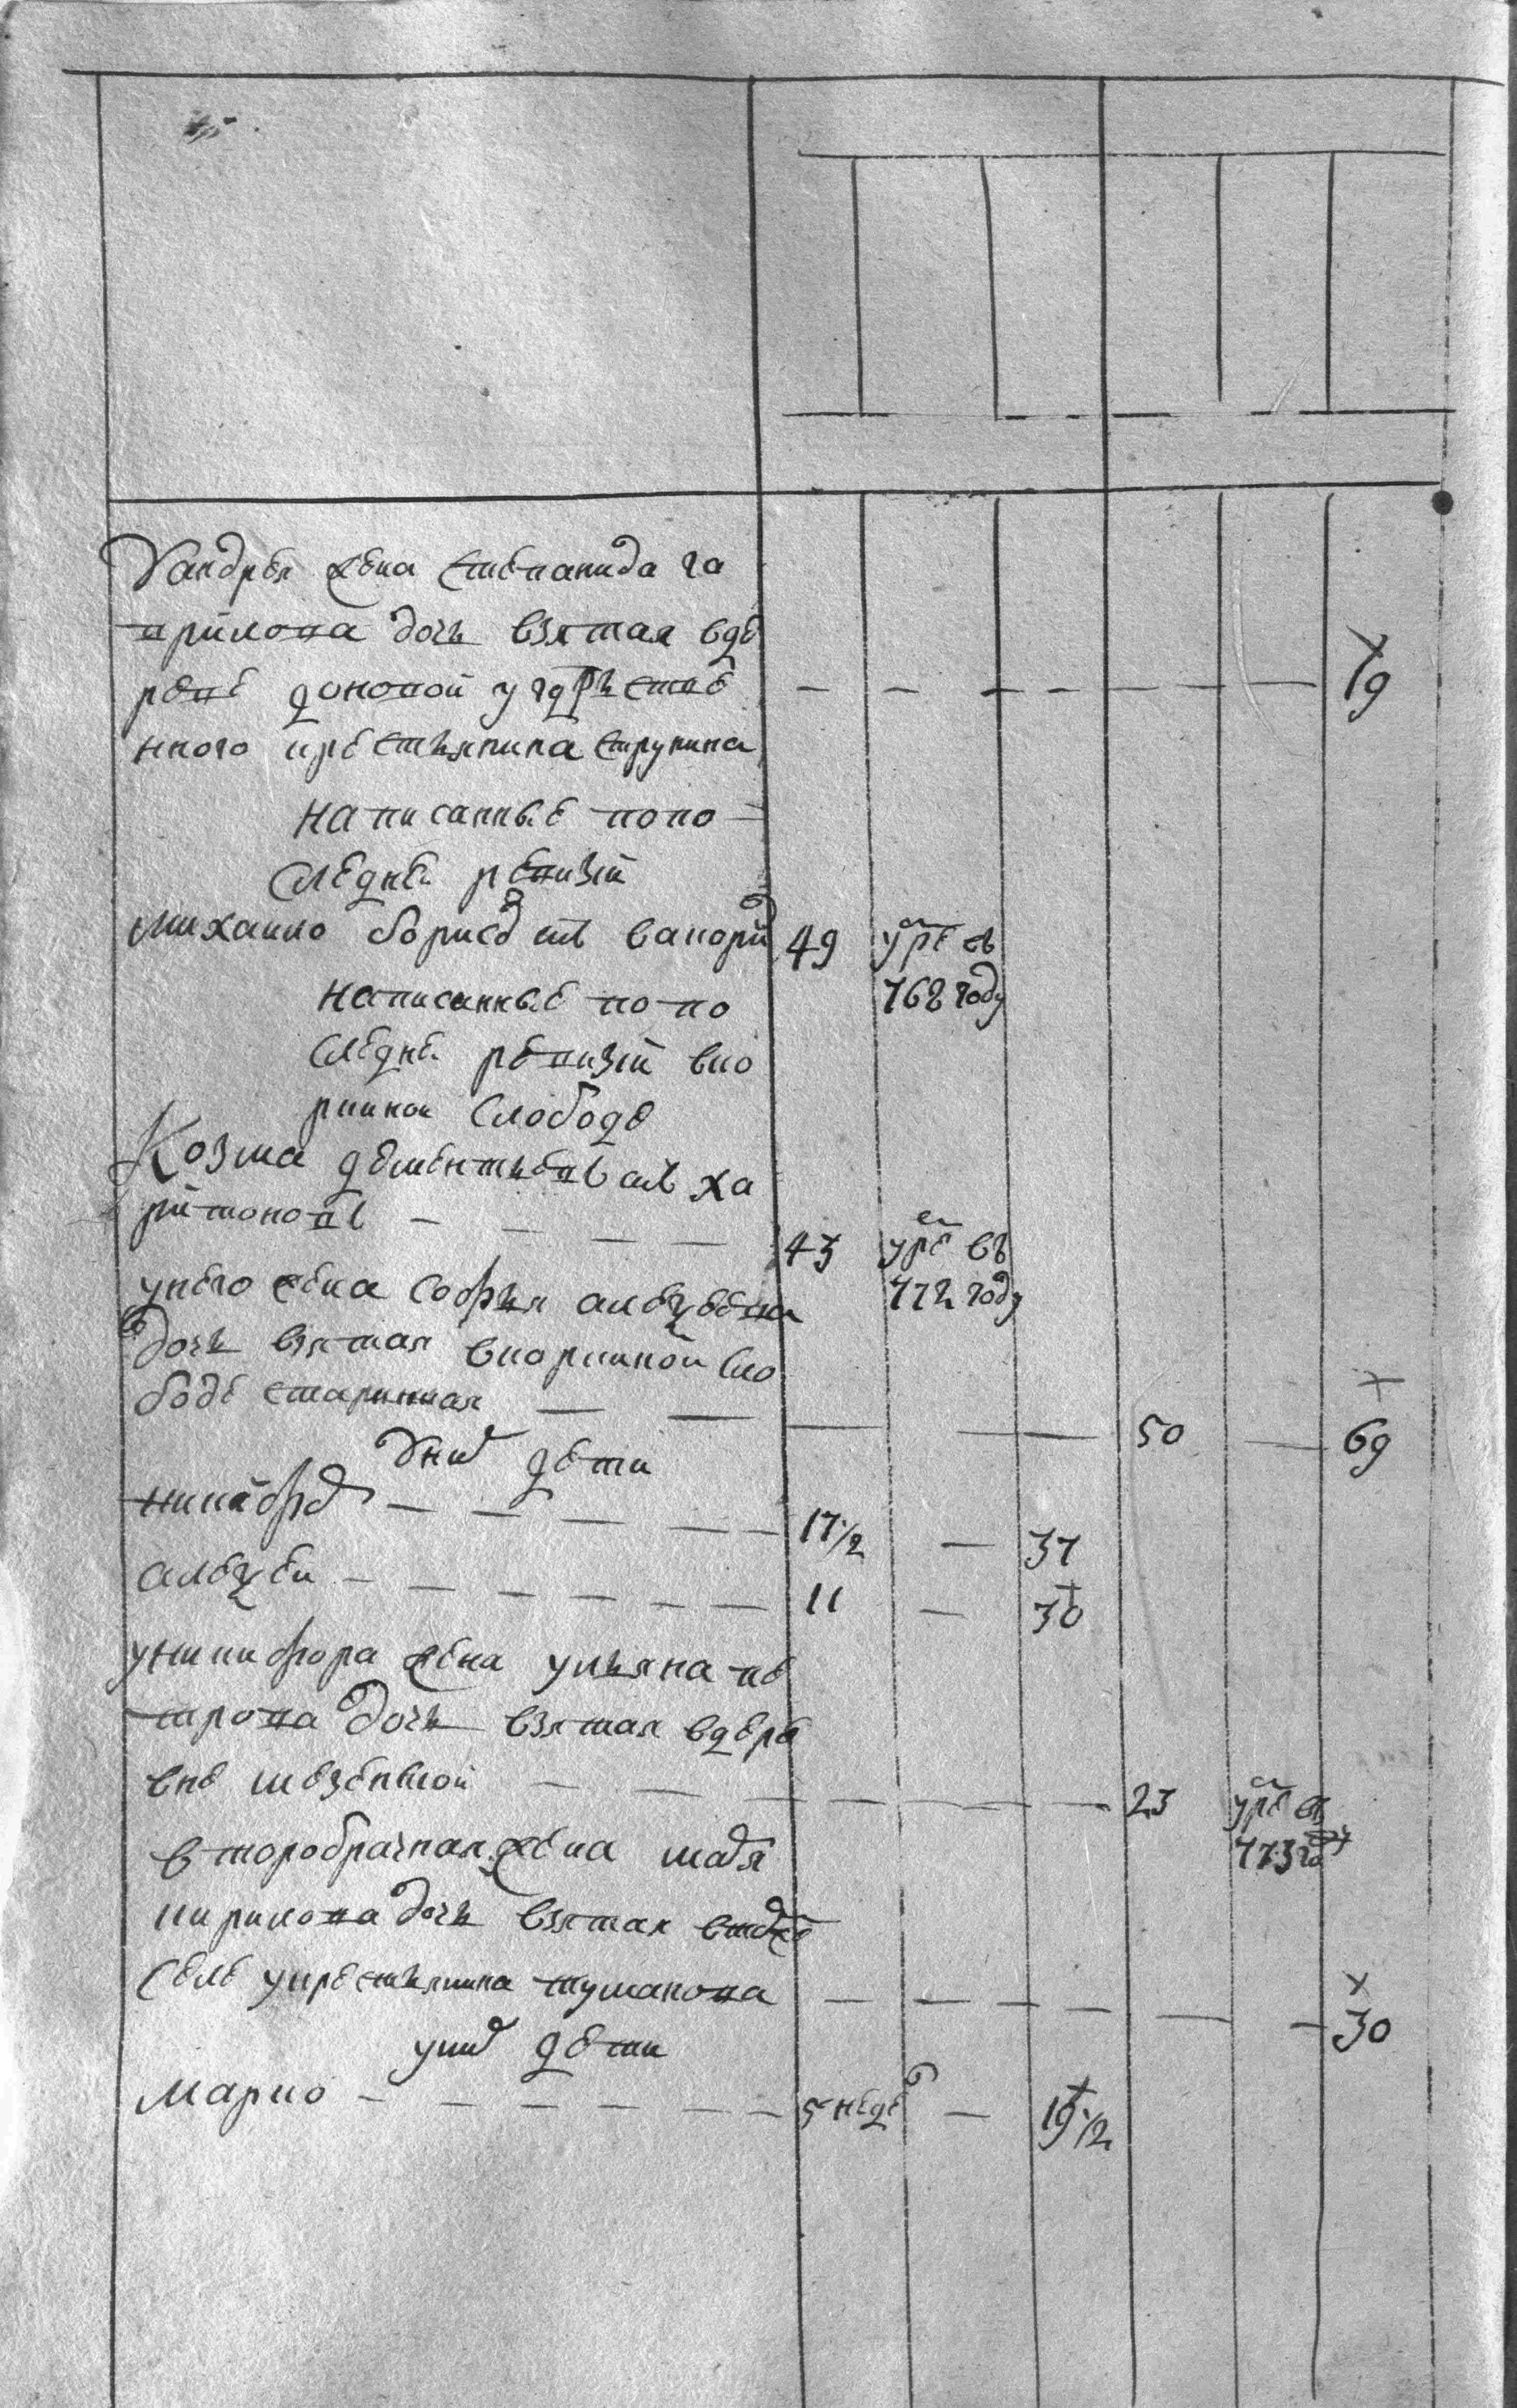 У андрея жена степанида га
врилова дочь взятая вде
ревне доновой у гдрьстве
нного крестьянина струнина 19
написанные попо
следнеи ревизии
михаило борисов снъ 49 умре въ
762 году
написанные по по
следнеи ревизии вко
ринной слободе
Козма дементьевъ снъ ха
ритоновъ 43 умре въ
772 году
унего жена софья алексеева
дочь взятая вкоринной сло
боде старинная 50 69
Уних дети
никифор 17 1/2 37
алексеи 11 30
уникифора жена ульяна пе
трова дочь взятая вдере
вне 23 умре въ
773 го
второбрачная жена
кирилова дочь взятая втомже
селе укрестьянина туманова 30
уних дети
марко 5 недел 19 1/2